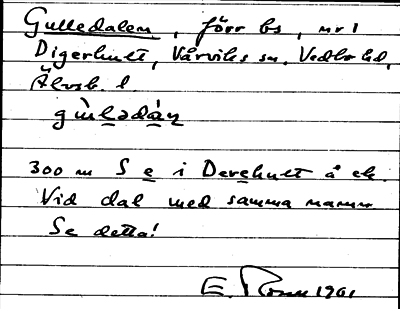 Gulledalen, förr bs, nr 1
Digerhult, Vårviks sn, Vedbo hd,
Älvsb. l.
gùlədán
300 m S e i Derehult å ek.
Vid dal med samma namn
Se detta!
E. 1901